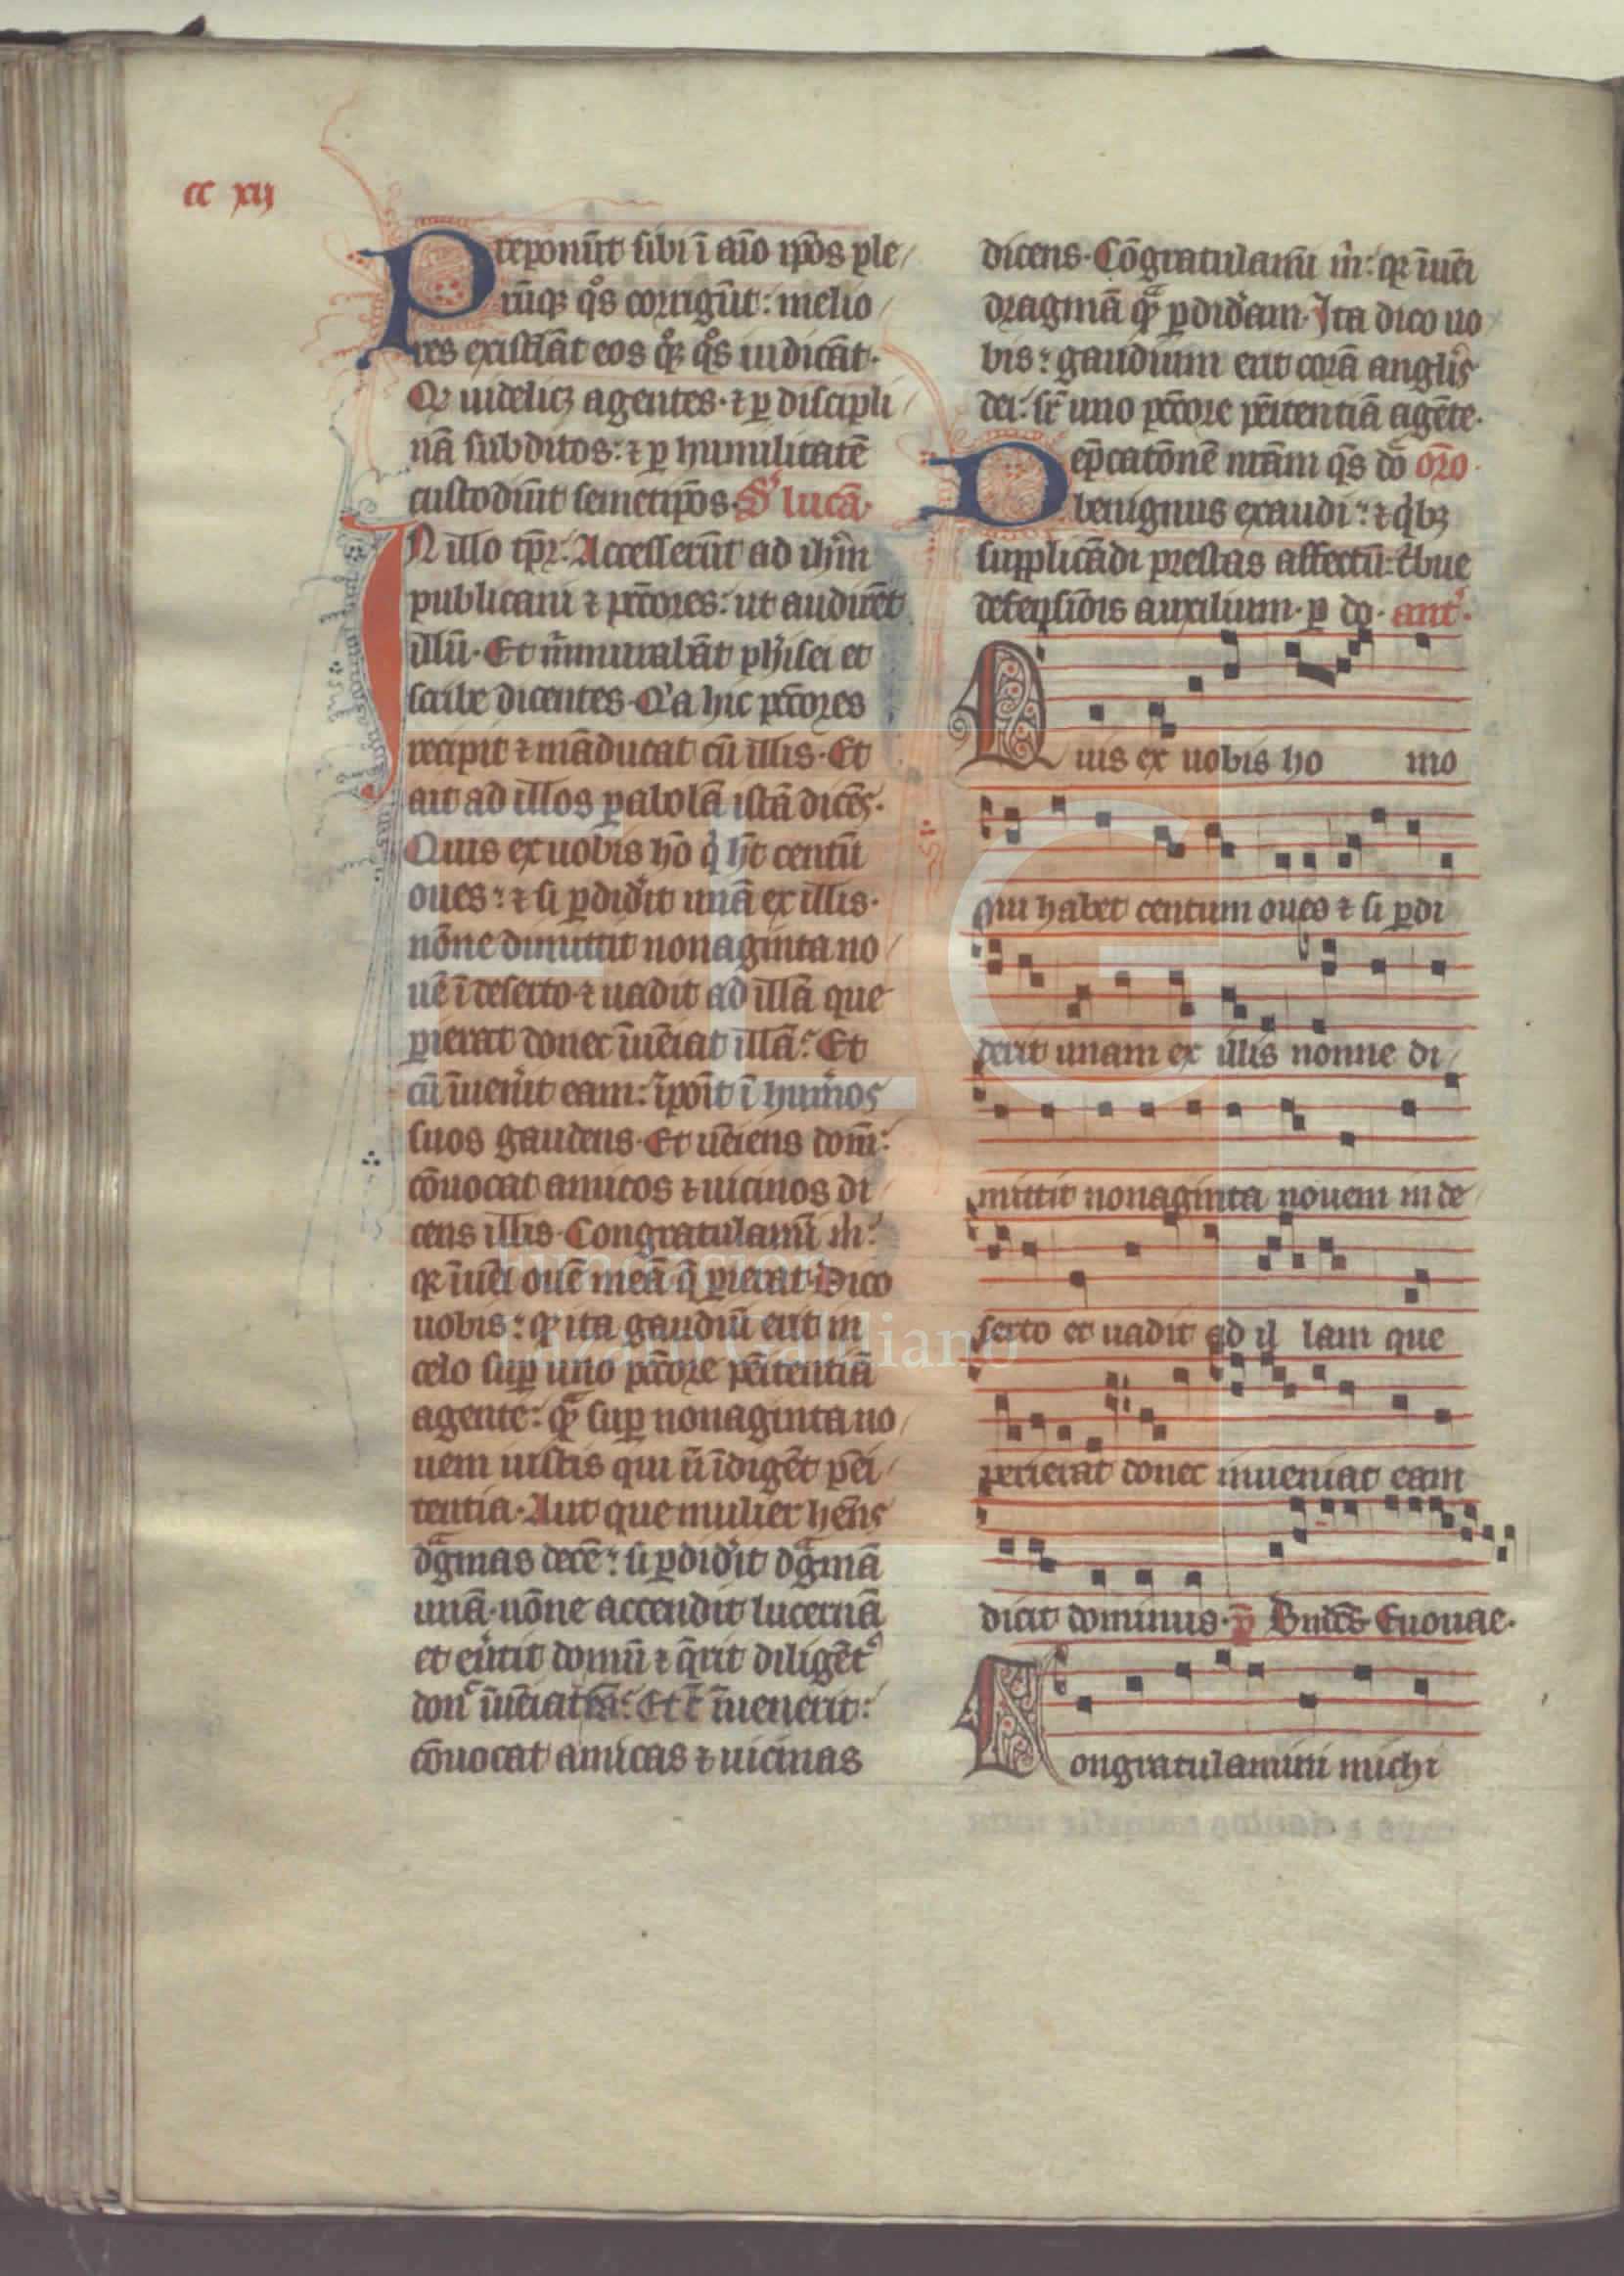 cc xij
Preponūt sibi ī aīo ip̄os ple
rūq; qͦs corrigūt: melio
res existīāt eos qͦq; qͦs iudicāt.
Qr̄ uidelic; agentes. ⁊ ꝑ discipli
nā subditos: ⁊ ꝑ humilitatē
custodiūt semetip̄os. S' lucā.
IN illo tp̄r. Accesserūt ad ih̄m
publicani ⁊ pcc̄ores: ut audirēt
illū. Et m̄murabāt phīsei et
scribe dicentes. Q'a hic pcc̄ores
recipit ⁊ māducat cū illis. Et
ait ad illos ꝑabolā istā dicēs.
Quis ex uobis hō q' ht̄ centū
oues: ⁊ si ꝑdid'it unā ex illis.
nōne dimittit nonaginta no
uē ī deserto. ⁊ uadit ad illā que
ꝑierat donec īuēiat illā: Et
cū īuen'it eam: īpōit ī hum'os
suos gaudens. Et uēiens dom̄:
cōuocat amicos ⁊ uicinos di
cens illis. Congratulamī m̄:
qr̄ īuēi ouē meā q̄ ꝑierat. Dico
uobis: qͣ ita gaudiū erit in
celo suꝑ uno pcc̄ore pēitentiā
agente: qͣ suꝑ nonaginta no
uem iustis qui ū īdigēt pēi
tentia. Aut que mulier hēns
dͣgmas decē: si ꝑdid'it dͣgmā
unā. nōne accendit lucernā
et eūtit domū ⁊ q̄rit diligēt
don̄ īuēiat: Et īuenerit:
cōuocat amicas ⁊ uicinas
dicens. Cōgratulamī m̄: qr̄ īuēi
dragmā qͣ ꝑdid'am. Ita dico uo
bis: gaudium erit corā angl'is
dei: sr̄ uno pcc̄ore pēitentiā agēte.
Dep̄catōnē nr̄am qs̄ dō or̄o.
benignus exaudi: ⁊ q'b;
supplicādi prestas affectū: t'bue
defensiōis auxilium. ꝑ do. ant'.
Quis ex uobis ho mo
qui habet centum oues ⁊ si ꝑdi
derit unam ex illis nonne di
mittit nonaginta nouem in de
serto et uadit ad il lam que
perierat donec inueniat eam
dicit dominus. p̄ Bn̄dc̄s Euouae.
Congratulamini michi
FLG
Fundación
Lázaro Galdiano